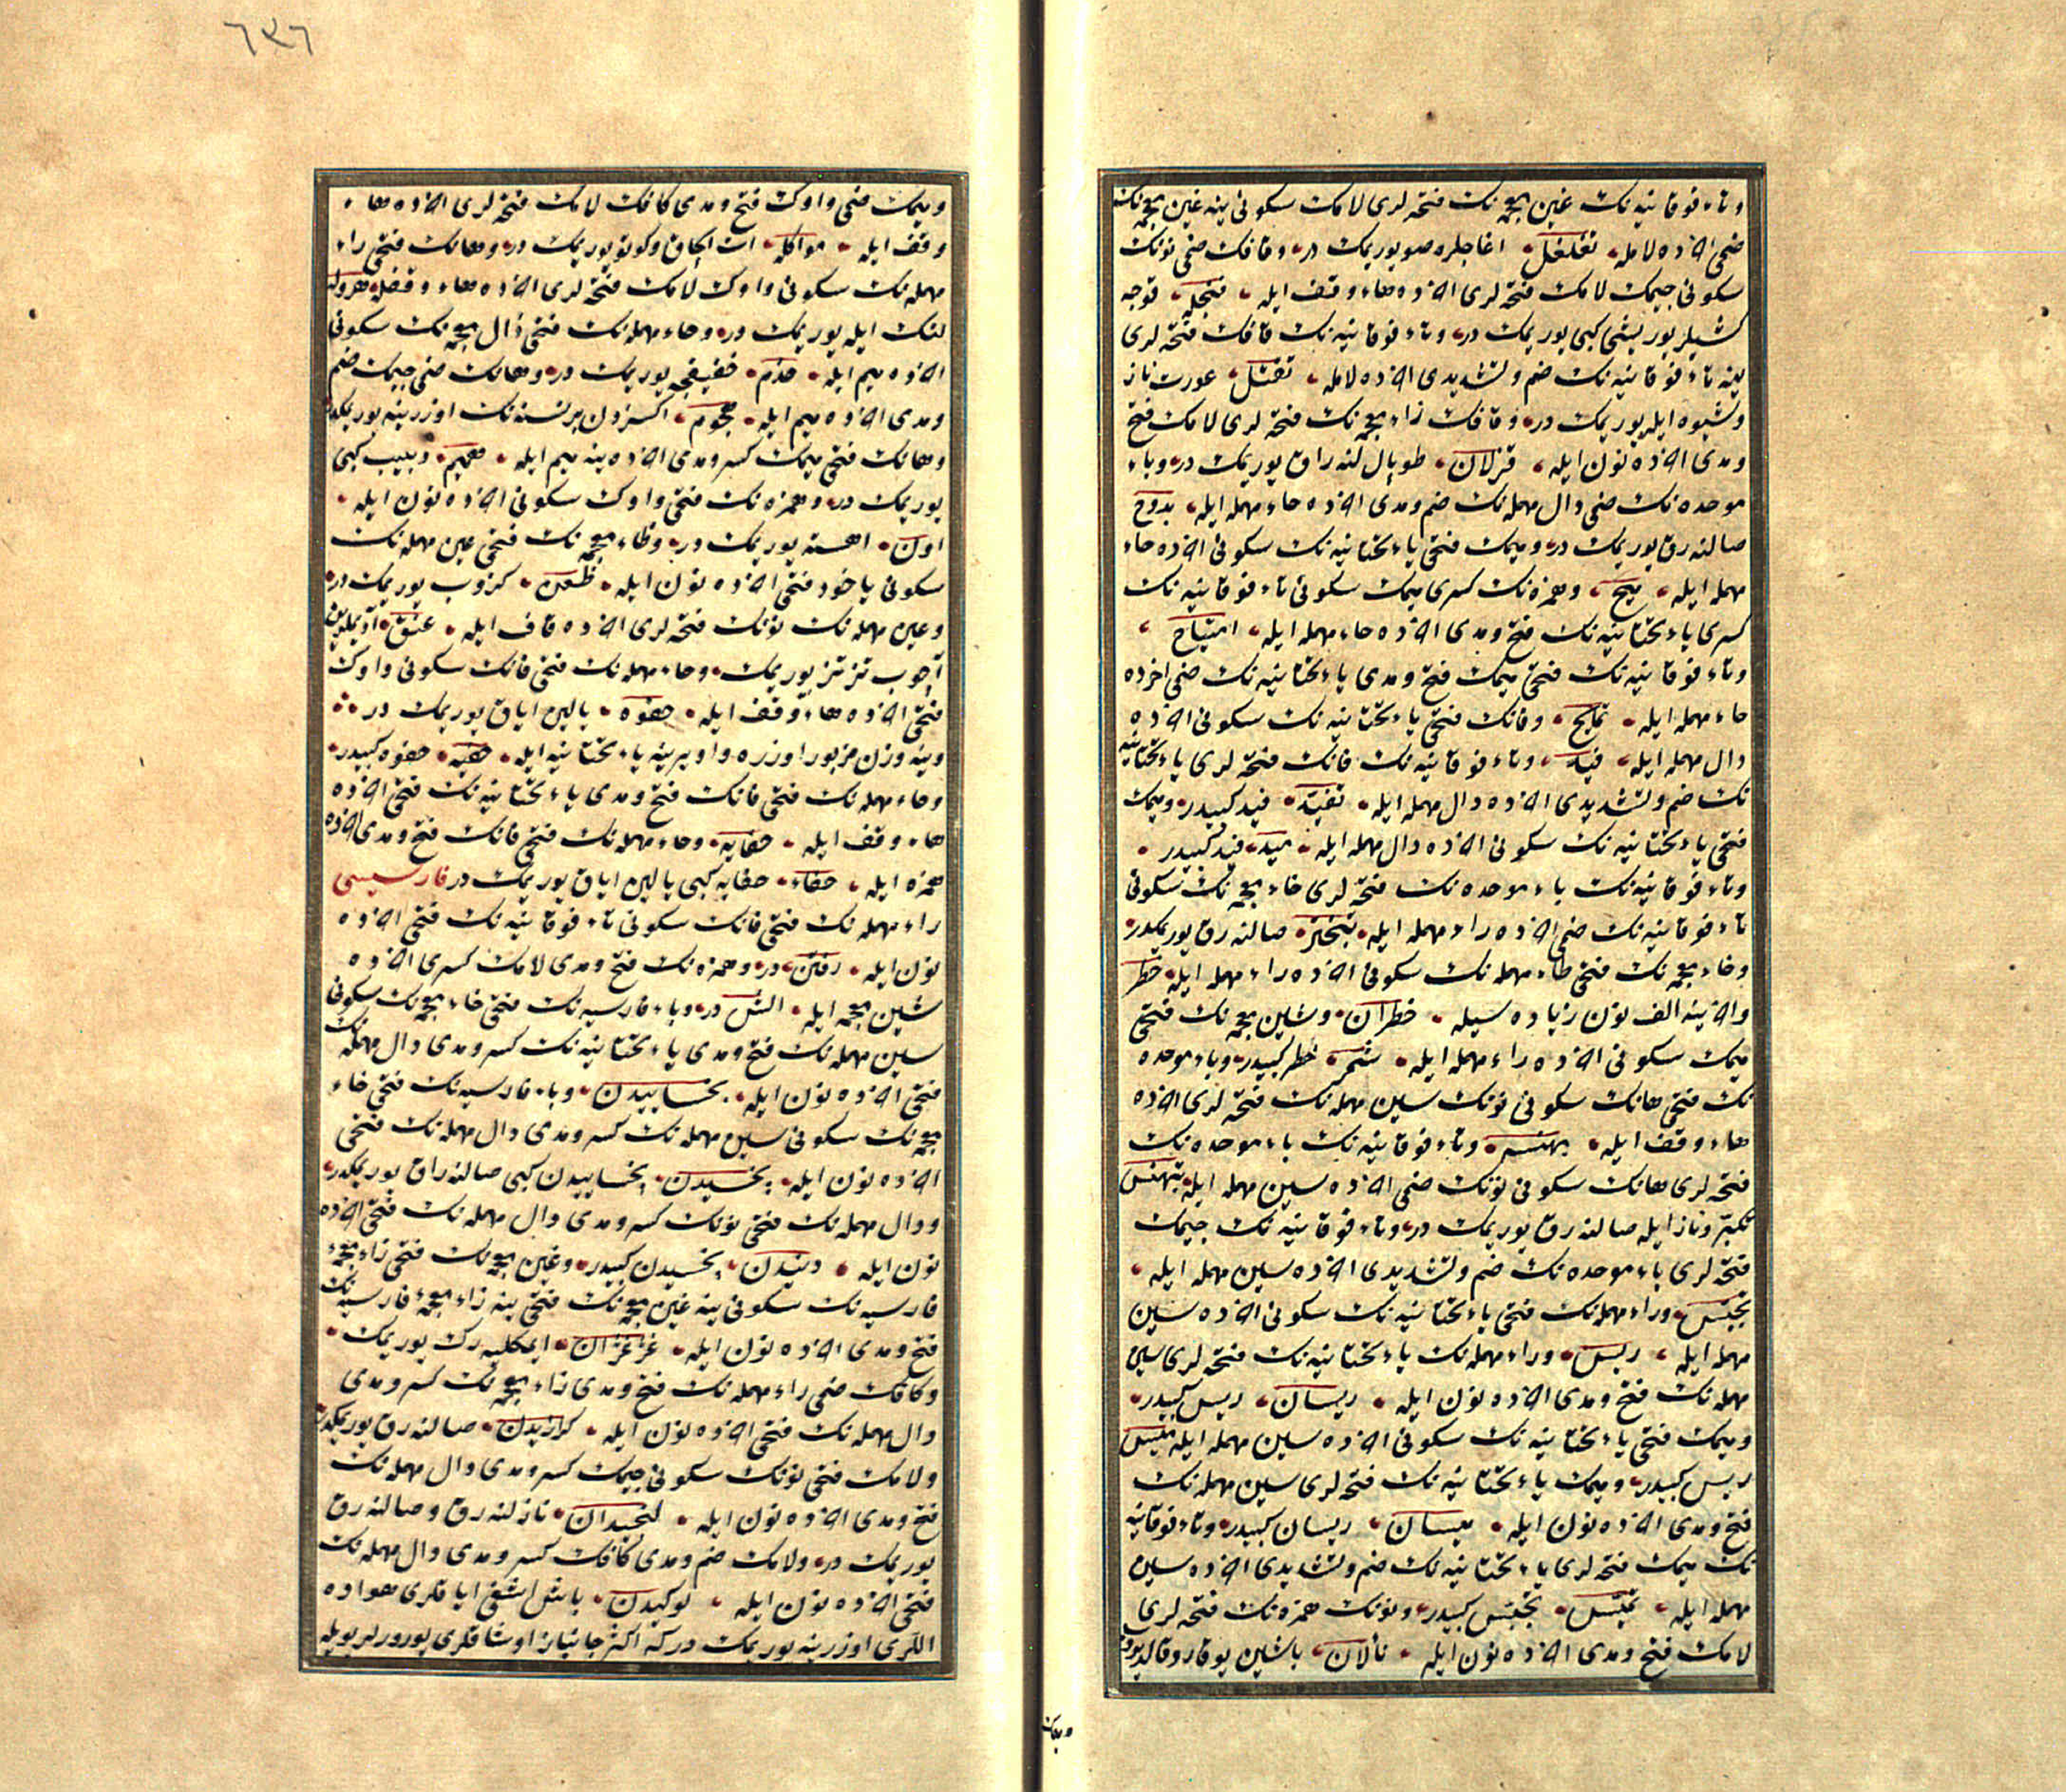 وتاء فوقانیه نك غین معجمه نك فتحه لری لامك سكونی ینه غین معجمه نك
ضمی اخرده لامله تغلغل اغاجلره صو یوریمك در وقافك ضمی نونك
سكونی جیمك لامك فتحه لری اخرده هاء وقف ایله قنجله قوجه
كشیلر یوریشی كبی یوریمك در وتاء فوقانیه نك قافك فتحه لری
ینه تاء فوقانیه نك ضم وتشدیدی اخرده لامله تقتل عورت ناز
وشیوه ایله یوریمك در وقافك زاء معجمه نك فتحه لری لامك فتح
ومدی اخرده نون ایله قزلان طوپال لنه راق یوریمك در وباء
موحده نك ضمی دال مهمله نك ضم ومدی اخرده حاء مهمله ایله بدوح
صالنه رق یوریمك در ومیمك فتحی یاء تحتانیه نك سكونی اخرده حاء
مهمله ایله میح وهمزه نك كسری میمك سكونی تاء فوقانیه نك
كسری یاء تحتانیه نك فتح ومدی اخرده حاء مهمله ایله امتیاح
وتاء فوقانیه نك فتحی میمك فتح ومدی یاء تحتانیه نك ضمی اخرده
حاء مهمله ایله تمایح وفانك فتحی یاء تحتانیه نك سكونی اخرده
دال مهمله ایله فید وتاء فوقانیه نك فانك فتحه لری یاء تحتانیه
نك ضم وتشدیدی اخرده دال مهمله ایله تفید فید كبیدر ومیمك
فتحی یاء تحتانیه نك سكونی اخرده دال مهمله ایله مید فید كبیدر
وتاء فوقانیه نك باء موحده نك فتحه لری خاء معجمه نك سكونی
تاء فوقانیه نك ضمی اخرده راء مهمله ایله تبختر صالنه رق یوریمكدر
وخاء معجمه نك فتحی طاء مهمله نك سكونی اخرده راء مهمله ایله خطر
واخرینه الف نون زیاده سیله خطران وشین معجمه نك فتحی
میمك سكونی اخرده راء مهمله ایله شمر خطر كبیدر وباء موحده
نك فتحی هانك سكونی نونك سین مهمله نك فتحه لری اخرده
هاء وقف ایله بهنسه وتاء فوقانیه نك باء موحده نك
فتحه لری هانك سكونی نونك ضمی اخرده سین مهمله ایله تبهنس
تكبر وناز ایله صالنه رق یوریمك در وتاء فوقانیه نك جیمك
فتحه لری باء موحده نك ضم وتشدیدی اخرده سین مهمله ایله
تجبس وراء مهمله نك فتحی یاء تحتانیه نك سكونی اخرده سین
مهمله ایله ریس وراء مهمله نك یاء تحتانیه نك فتحه لری سین
مهمله نك فتح ومدی اخرده نون ایله ریسان ریس كبیدر
ومیمك فتحی یاء تحتانیه نك سكونی اخرده سین مهمله ایله میس
ریس كبیدر ومیمك یاء تحتانیه نك فتحه لری سین مهمله نك
فتح ومدی اخرده نون ایله میسان ریسان كبیدر وتاء فوقانیه
نك میمك فتحه لری یاء تحتانیه نك ضم وتشدیدی اخرده سین
مهمله ایله تمیس تجبس كبیدر ونونك همزه نك فتحه لری
لامك فتح ومدی اخرده نون ایله نألان باشین یوقارو قالدیروب
ومیمك
٦٣٦
ومیمك ضمی واوك فتح ومدی كافك لامك فتحه لری اخرده هاء
وقف ایله مواكله ات ایاق كوتو یوریمك در وهانك فتحی راء
مهمله نك سكونی واوك لامك فتحه لری اخرده هاء وقفله هروله
لنك ایله یوریمك در وحاء مهمله نك فتحی ذال معجمه نك سكونی
اخرده میم ایله حذم خفیفجه یوریمك در وهانك ضمی جیمك ضم
ومدی اخرده میم ایله هجوم اكسزدن بر نسنه نك اوزرینه یوریمكدر
وهانك فتحی میمك كسر ومدی اخرده ینه میم ایله همیم دبیب كبی
یوریمك در وهمزه نك فتحی واوك سكونی اخرده نون ایله
اون اهسته یوریمك در وظاء معجمه نك فتحی عین مهمله نك
سكونی یاخود فتحی اخرده نون ایله ظعن كزوب یوریمك در
وعین مهمله نك نونك فتحه لری اخرده قاف ایله عنق آدیملرین
آچوب تز تز یوریمك وحاء مهمله نك فتحی فانك سكونی واوك
فتحی اخرده هاء وقف ایله حفوه یالین ایاق یوریمك در
وینه وزن مزبور اوزره واو یرینه یاء تحتانیه ایله حفیه حفوه كبیدر
وحاء مهمله نك فتحی فانك فتح ومدی یاء تحتانیه نك فتحی اخرده
هاء وقف ایله حفایه وحاء مهمله نك فتحی فانك فتح ومدی اخرده
همزه ایله حفاء حفایه كبی یالین ایاق یوریمك در فارسیسی
راء مهمله نك فتحی فانك سكونی تاء فوقانیه نك فتحی اخرده
نون ایله رفتن در وهمزه نك فتح ومدی لامك كسری اخرده
شین معجمه ایله الش در وباء فارسیه نك فتحی خاء معجمه نك سكونی
سین مهمله نك فتح ومدی یاء تحتانیه نك كسر ومدی دال مهمله نك
فتحی اخرده نون ایله پخساییدن وباء فارسیه نك فتحی خاء
معجمه نك سكونی سین مهمله نك كسر ومدی دال مهمله نك فتحی
اخرده نون ایله پخسیدن پخساییدن كبی صالنه راق یوریمكدر
ودال مهمله نك فتحی نونك كسر ومدی دال مهمله نك فتحی اخرده
نون ایله دنیدن پخسیدن كبیدر وغین معجمه نك فتحی زاء معجمه
فارسیه نك سكونی ینه غین معجمه نك فتحی ینه زاء معجمه فارسیه نك
فتح ومدی اخرده نون ایله غژغژان ایمكلیه رك یوریمك
وكافك ضمی راء مهمله نك فتح ومدی زاء معجمه نك كسر ومدی
دال مهمله نك فتحی اخرده نون ایله كرازیدن صالنه رق یوریمكدر
ولامك فتحی نونك سكونی جیمك كسر ومدی دال مهمله نك
فتح ومدی اخرده نون ایله لنجیدان نازلنه رق وصالنه رق
یوریمك در ولامك ضم ومدی كافك كسر ومدی دال مهمله نك
فتحی اخرده نون ایله لوكیدن باش اشغی ایاقلری هواده
اللری اوزرینه یوریمك در كه اكثر جانباز اوشاقلری یورورلر بویله